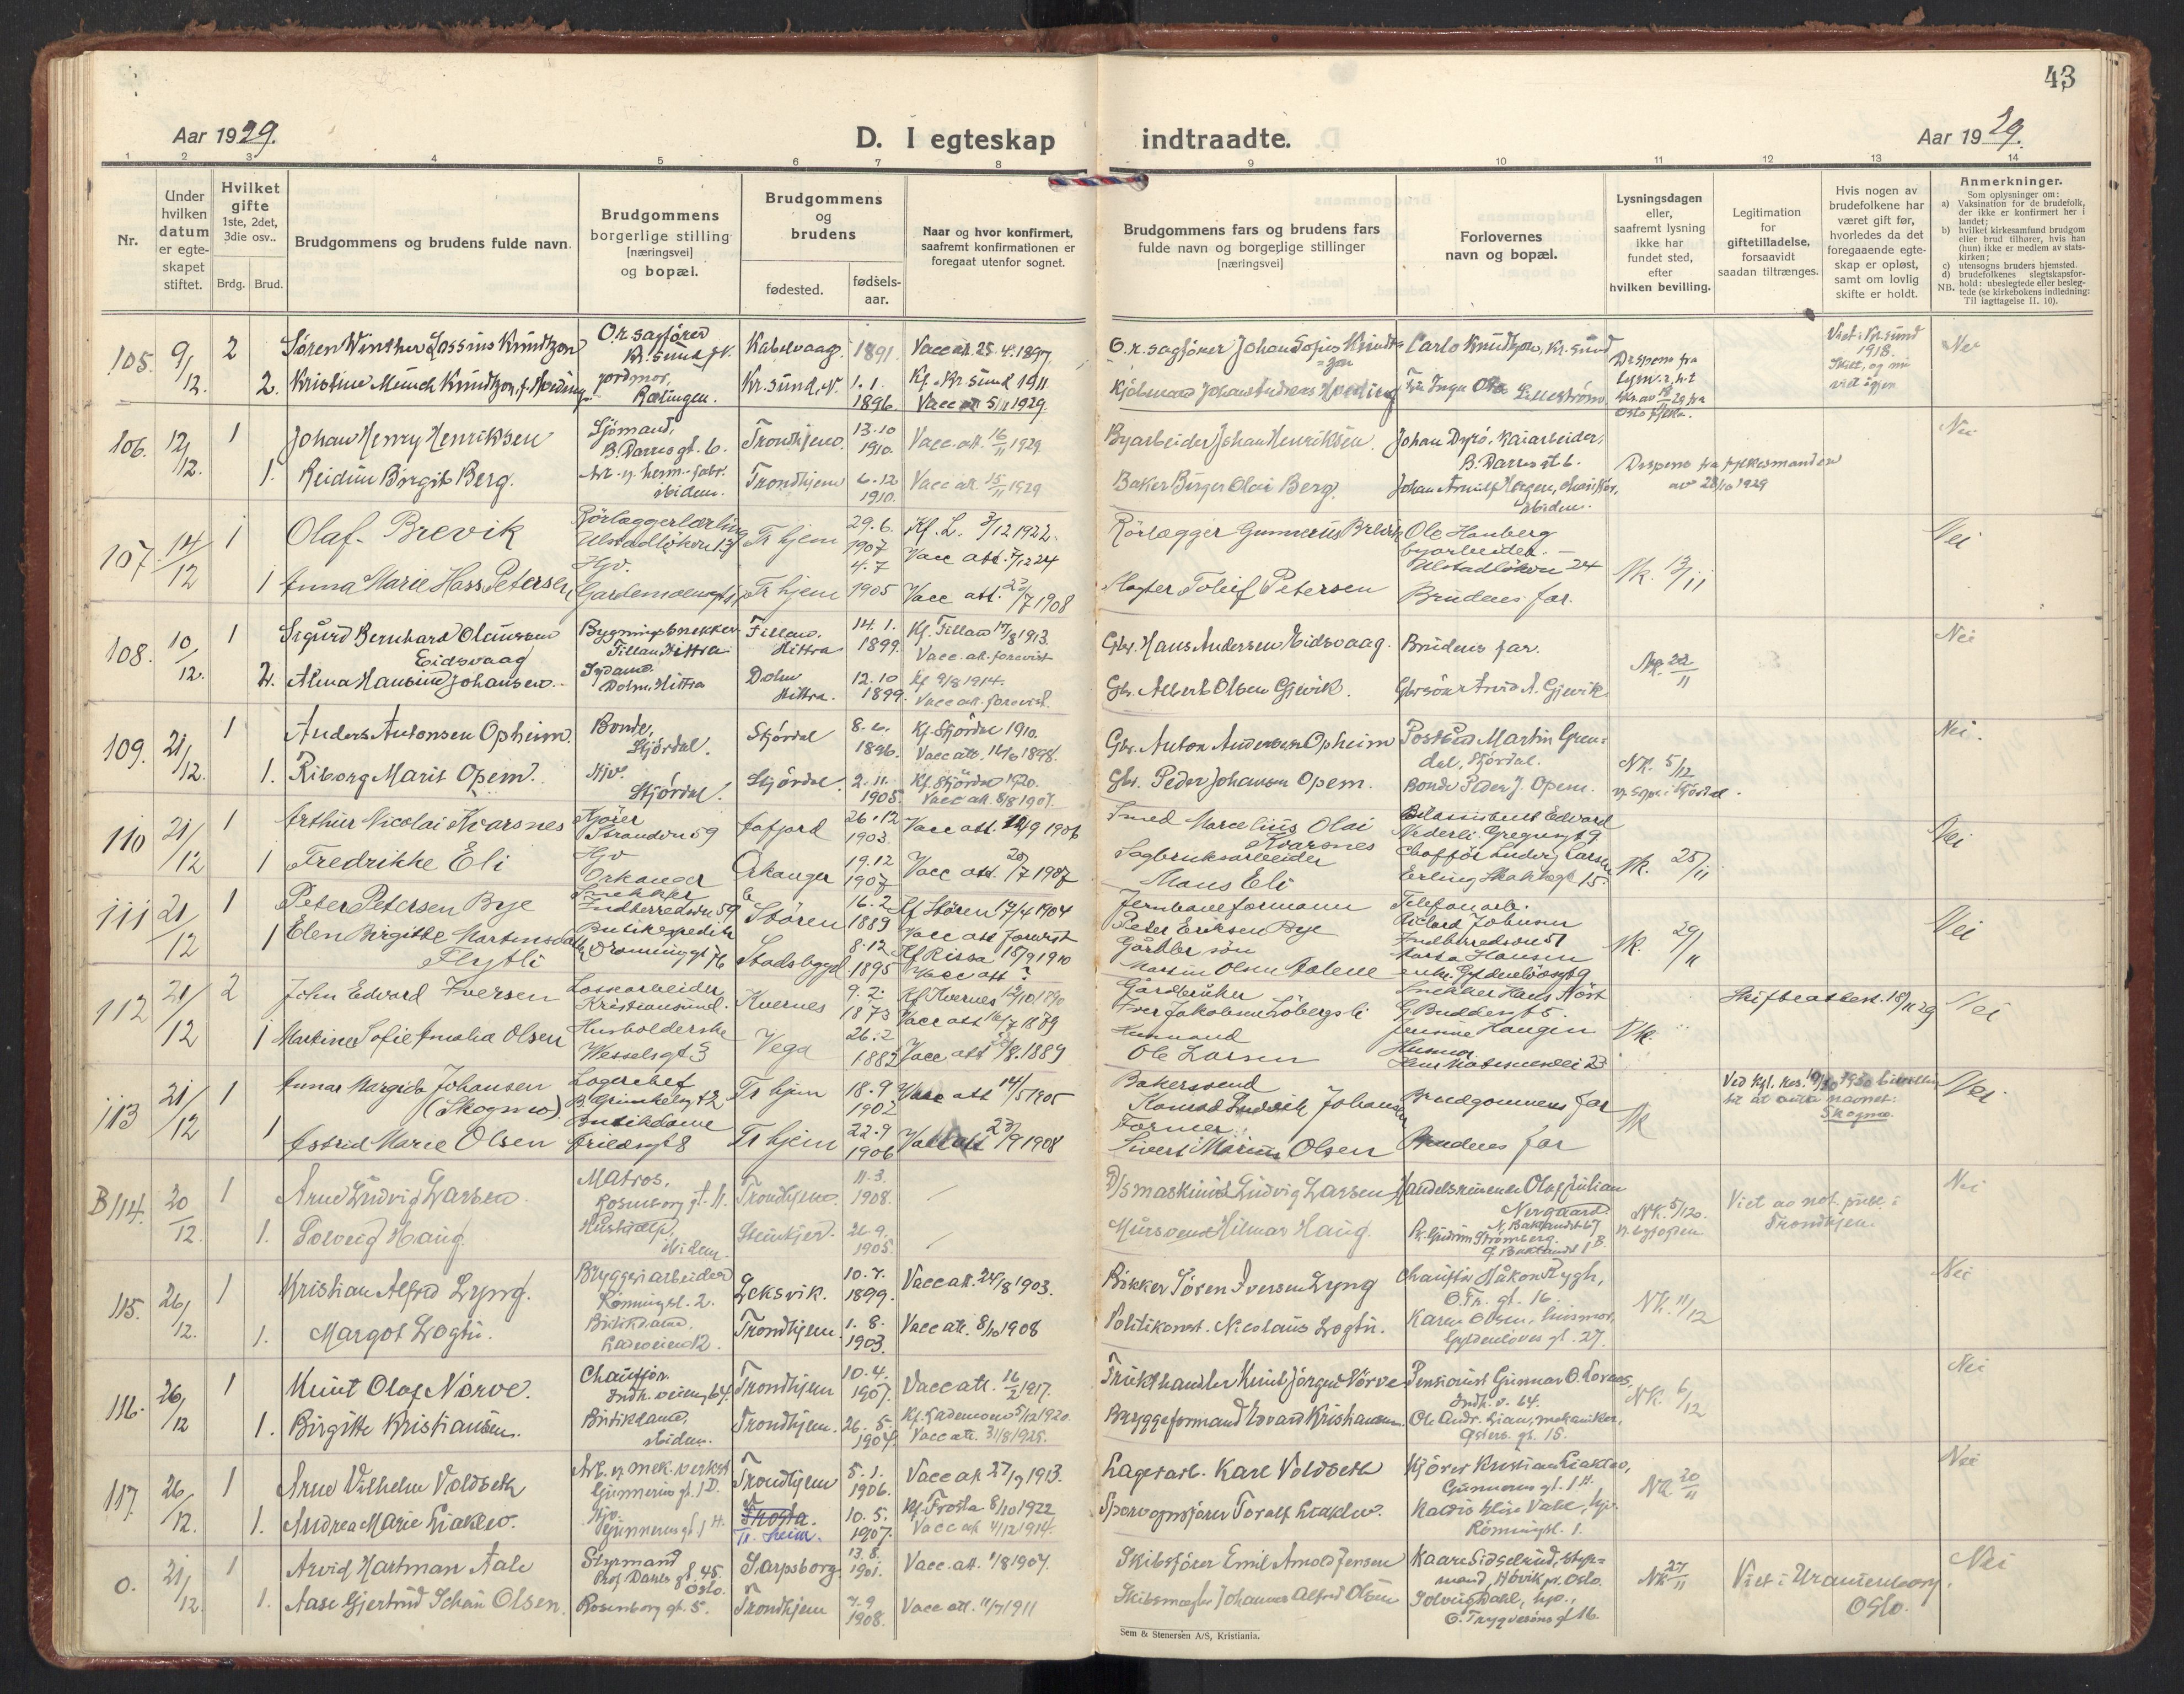 43
Aar 1929.
D. I egteskap indtraadte.
Aar 1929.
1 2 3 4 5 6 7 8 9 10 11 12 13 14
Nr.
Under hvilken datum er egte- skapet stiftet.
Hvilket gifte 1ste, 2det, 3die osv..
Brdg. Brud.
Brudgommens og brudens fulde navn.
Brudgommens borgerlige stilling [næringsvei] og bopæl.
Brudgommens og brudens
fødested.
fødsels- aar.
Naar og hvor konfirmert, saafremt konfirmationen er foregaat utenfor sognet.
Brudgommens fars og brudens fars fulde navn og borgerlige stillinger [næringsvei]
Forlovernes navn og bopæl.
Lysningsdagen eller, saafremt lysning ikke har fundet sted, efter hvilken bevilling.
Legitimation for giftetilladelse, forsaavidt saadan tiltrænges.
Hvis nogen av brudefolkene har været gift før, hvorledes da det foregaaende egte- skap er opløst, samt om lovlig skifte er holdt.
Anmerkninger.
Som oplysninger om:
a) Vaksination for de brudefolk, der ikke er konfirmert her i landet;
b) hvilket kirkesamfund brudgom eller brud tilhører, hvis han (hun) ikke er medlem av stats- kirken;
c) utensogns bruders hjemsted.
d) brudefolkenes slegtskapsfor- hold: ubeslegtede eller besleg- tede (se kirkebokens indledning:
NB. Til iagttagelse II. 10).
105. 9/12. 2 Søren Winther Lossius Knudtzon O.r.sagfører Kr.sund N. Kabelvaag 1891. Vacc att. 25.4.1897 O.r.sagfører Johan Knudt=zon Carlo Knudtzon, Kr.sund Viet i Kr.sund 1918. Skilt, og nu viet igjen Nei
2. Kristine Münch Knudtzon, f. jordmor, Rælingen. Kr.sund N. 1.1. 1896. Kf. Kr.sund 1911. Vacc 1929. Lillestrøm
106. 12/12. 1 Johan Henry Henriksen Sjømand, B. Darres gt. 6. Trondhjem 13.10 1910. Vacc. att. 16/11 1929 Byarbeider Johan Henriksen Johan Dyrø, kaiarbeider, B. Darres gt. 6. Nei
1. Reidun Birgit Berg. ibidem. Trondhjem 6.12 1910. Vacc att. 15/11 1929 Baker Birger Olai Berg. ibidem. Dispens fra fylkesmanden av 28/10 1929
107. 14/12 1 Olaf Brevik Rörlæggerlærling Ulstadlökken 13 Tr hjem 29.6. 1907 Kf. L. 3/12 1922. Vacc att. 7/12 24 Rörlægger Gunnerius Brevik Ole Hanberg byarbeider. Ulstadlökken 24 Nei
1 Anna Marie Hass Petersen Hv. Gardemoensgt Tr hjem 4.7 1905 Vacc att. 23/7 1908 Tolleif Petersen Brudens far. Nk. 13/11
108. 10/12. 1 Sigurd Bernhard Olaussen Eidsvaag Bygningssnekker Fillan, Hittra Fillan. Hittra 14.1. 1899. Kf. Fillan 17/8 1913. Vacc. att. forevist Gbr. Hans Andersen Eidsvaag. Brudens far. Nei
2. Alma Hansine Johansen. Sydame. Dolm, Hittra Dolm Hittra. 12.10 1899. Kf 9/8 1914. Vacc att. forevist. Gbr. Albert Olsen Gjevik. Gbrsön Arvid A. Gjevik. 22/11
109. 21/12. 1 Anders Antonsen Opheim. Bonde, Stjördal. Stjördal 8.6. 1896. Kf. Stjördal 1910. Vacc att. 1898. Gbr. Anton Andersen Opheim Martin Gren=dal, Stjördal. Nei.
1. Riborg Marit Opem. Hjv. Stjördal. Stjördal. 2.11. 1905. Kf. Stjördal 1920. Vacc att. 8/8 1907. Gbr. Peder Johansen Opem. Bonde Peder J. Opem. NK. 5/12
110 21/12 1 Arthur Nicolai Kvarsnes Kjörer Stranden 59 Jøfjord 26.12 1903. Vacc att. 9 1906 Smed Marcelius Olai Kvarsnes Edvard Nederli. Gregusgt 9 Nei
1 Fredrikke Eli Hjv Orkanger Orkanger 19.12 1907 Vacc att. 20/7 1907 Sagbruksarbeider Mans Eli Chafför Ludvig Larsen Erling Skakkesgt 15. Nk. 25/11
111 21/12 1 Peter Petersen Bye Snekker Indherredsv 59 Stören 16.2 1889 Kf Stören 17/4 1904 Vacc att forevist Jernbaneformann Peter Eriksen Bye Telefonarb. Rickard Johnsen Indherredsv 51 Nei
1 Elen Birgitte Martinsdatter Flytli Butikexpeditr Dronningsgt 76 Stadsbygd 8.12. 1895 Kf Rissa 18/9 1910 Vacc att ? Martin Olsen Marta Hansen Gyldenlövesgt 9 Nk. 29/11
112 21/12 2 John Edvard Iversen Lossearbeider Kristiansund. Kvernes 9.2. 1873 Kf Kvernes Vacc att 16/7 1879 Gårdbruker Iver Jakobsen Löbergsli Snekker Hans Höst G. Buddesgt 5. Skifteattest. 18/11 29 Nei
1 Martine Sofie Amalia Olsen Husholderske Wesselsgt 3 Vega 26.2 1882 Vacc att /8.1889 Husmand Ole Larsen Jensine Haugen Husmor Nk.
113 21/12 1 Annar Margido Johansen (Skogmo) Lagerchef B. Grimkelsgt 2 Tr hjem 18.9 1902 Vacc att 14/5 1905 Bakersvend Konrad Fredrik Johansen Brudgommens far Nk Ved kgl. res. 1930 Skogmo Nei
1 Astrid Marie Olsen Butikdame Arildsgt 8 Tr hjem 22.9 1906 Vacc att 23/9 1908 Former Sivert Marius Olsen Brudens far
B 114. 20/12. 1 Arne Ludvig Larsen Matros. Rosenborg gt. 11. Trondhjem. 11.3. 1908. / D/S maskinist Ludvig Larsen Handelsreisende Olaf Julian Nergaard. N. Baklandet 67 NK. 5/12 Viet av not. publ. i Trondhjem. Nei
1. Solveig Haug. Hushjelp, ibidem. Steinkjer. 26.9. 1905. / Mursvend Hilmar Haug. Fr. Gudrun Strömberg. Ö. Baklandet 1 B.
115. 26/12. 1 Kristian Alfred Lyng. Bryggeriarbeider Rønningsl. 2. Leksvik. 10.7. 1899. Vacc att. 24/8 1903. Bøkker Søren Iversen Lyng Chauffør Håkon Rygh, O. Tr. gt. 16. Nei
1. Margot Logtu. Butikdame. Ladeveien 12. Trondhjem. 1.8. 1903. Vacc att. 8/10 1908 Politikonst. Nicolaus Logtu. Karen Olsen, husmor, Gyldenløves gt. 27. NK. 11/12
116. 26/12 1 Knut Olaf Nørve. Chauffør. Indh. veien 64. Trondhjem 10.4. 1907. Vacc att. 16/2 1917. Frukthandler Knut Jørgen Nørve Pensionist Gunnar O. Indh. v. 64. NK. 6/12 Nei
1. Birgitte Kristiansen. Butikdame, ibidem. Trondhjem. 26.5. 1904. Kf. Lademoen 5/12 1920. Vacc att. 31/8 1925. Bryggeformand Edvard Kristiansen. Ole Andr. Lian, mekaniker, Østers. gt. 15.
117. 26/12. 1 Arne Vilhelm Voldseth Arb. v. mek. verkst Gunnerus gt. 1 D. Trondhjem 5.1. 1906. Vacc att 27/9 1913. Lagerarb. Karl Voldseth Kjører Kristian Liaklev, Gunnerus gt. 1 H. NK. 20/11 Nei
1. Andrea Marie Liaklev. Hjv. Gunnerus gt 1 H. Frosta. Tr. heim. 10.5. 1907. Kf. Frosta 8/10 1922 Vacc att 4/12 1914. Sporvognsfører Toralf Liaklev. Rønningsl. 1.
0. 21/12. 1 Arvid Hartman Aale Styrmand Prof. Dahls gt. 45. Oslo. Sarpsborg 13.8. 1901. Vacc. att. 1/8 1907. Skibsfører Emil Arnold Jensen Kaare Sidselrud, styr=mand, Høvik pr. Oslo. NK 27/11 Viet i Uranienborg, Oslo. Nei
1. Aase Gjertrud Schau Olsen. Rosenborg gt. 5. Trondhjem 7.9 1908. Vacc att. 11/7 1911 Skibsmægler Johannes Alfred Olsen Solveig Dahl, hjv., O. Trygvesøns gt 16.
Sem & Stenersen A/S, Kristiania.